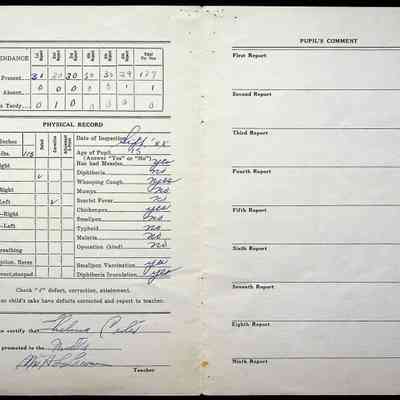 NDANCE 1st Report 2nd Report 3rd Report 4th Report 5th Report 6th Report Total For Year
Present 31 20 30 30 30 29
Absent 0 0 0 0 0 1 1
s Tardy 0 1 0 0 0 0 1
PHYSICAL RECORD
nches
lbs. 115
ight
Right
Left
—Right
—Left
reathing
Date of Inspection Sept.
Age of Pupil 15
(Answer "Yes" or "No")
Has had Measles yes
Diphtheria no
Whooping Cough yes
Mumps no
Scarlet Fever no
Chickenpox yes
Smallpox no
Typhoid no
Malaria no
Operation (kind) no
Smallpox Vaccination yes
Diphtheria Inoculation yes
Check "√" defect, correction, attainment.
or child's sake have defects corrected and report to teacher.
to certify that Thelma
promoted to the
Teacher
PUPIL'S COMMENT
First Report
Second Report
Third Report
Fourth Report
Fifth Report
Sixth Report
Seventh Report
Eighth Report
Ninth Report